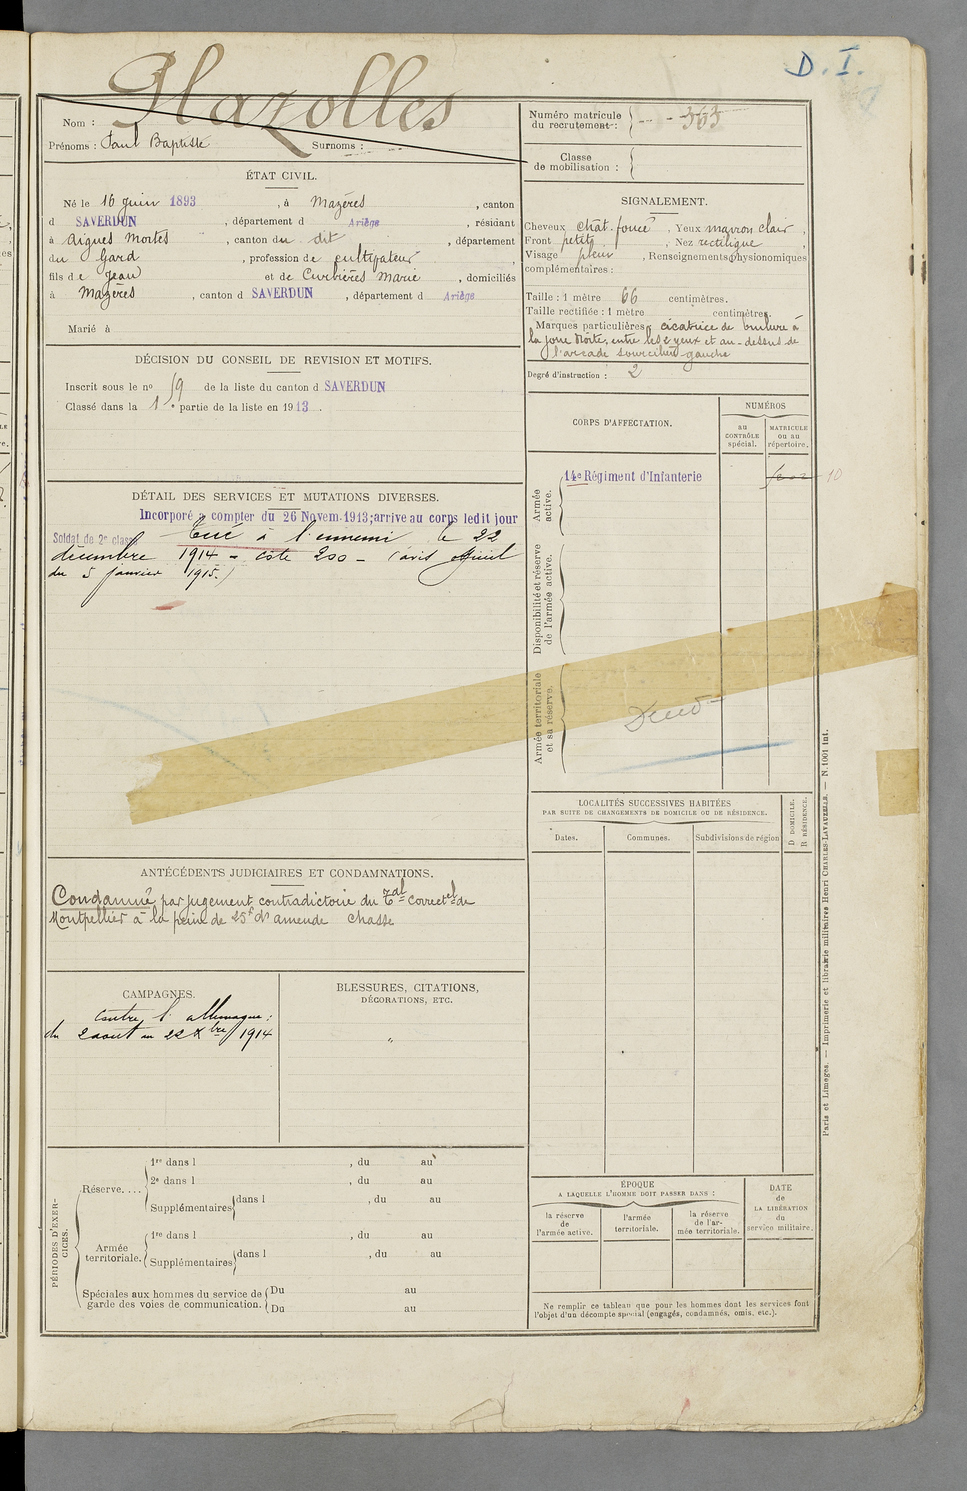 D. I.
Nom : Glazolles
Prénoms : Paul Baptiste Surnoms :
Numéro matricule du recrutement : 363
Classe de mobilisation :
ÉTAT CIVIL.
Né le 16 juin 1893, à Mazères, canton
d SAVERDUN, département d Ariège, résidant
à Aigues Mortes, canton du dit, département
du Gard, profession de cultivateur,
fils de Jean et de Curbières Marie, domiciliés
à Mazères, canton d SAVERDUN, département d Ariège
Marié à
SIGNALEMENT.
Cheveux chât. foncé, Yeux marron clair,
Front petit, Nez rectiligne
Visage plein, Renseignements physionomiques
complémentaires :
Taille : 1 mètre 66 centimètres.
Taille rectifiée : 1 mètre centimètres.
Marques particulières cicatrice de brulure à
la joue droite, entre les 2 yeux et au-dessus de
l'arcade sourcilière gauche
Degré d'instruction : 2
DÉCISION DU CONSEIL DE REVISION ET MOTIFS.
Inscrit sous le no 59 de la liste du canton d SAVERDUN
Classé dans la 1e partie de la liste en 1913.
CORPS D'AFFECTATION.
NUMÉROS
au CONTRÔLE spécial.
MATRICULE ou au répertoire.
Armée active.
14e Régiment d'Infanterie
10
Disponibilité et réserve de l'armée active.
Armée territoriale et sa réserve.
DÉTAIL DES SERVICES ET MUTATIONS DIVERSES.
Incorporé à compter du 26 Novem. 1913; arrive au corps ledit jour
Soldat de 2e classe Tué à l'ennemi le 22
décembre 1914 - cote 200 - (avis officiel
du 5 janvier 1915.)
LOCALITÉS SUCCESSIVES HABITÉES
PAR SUITE DE CHANGEMENTS DE DOMICILE OU DE RÉSIDENCE.
D DOMICILE.
R RÉSIDENCE.
Dates. Communes. Subdivisions de région
ANTÉCÉDENTS JUDICIAIRES ET CONDAMNATIONS.
Condamné par jugement contradictoire du Tal Correctel de
Montpellier à la peine de 25f d'amende chasse
CAMPAGNES.
Contre l'allemagne :
du 2 aout au 22 Xbre 1914
BLESSURES, CITATIONS,
DÉCORATIONS, ETC.
"
PÉRIODES D'EXERCICES.
Réserve....
1re dans l , du au
2e dans l , du au
Supplémentaires dans l , du au
Armée territoriale.
1re dans l , du au
Supplémentaires dans l , du au
Spéciales aux hommes du service de garde des voies de communication.
Du au
Du au
ÉPOQUE
A LAQUELLE L'HOMME DOIT PASSER DANS :
la réserve de l'armée active.
l'armée territoriale.
la réserve de l'armée territoriale.
DATE de LA LIBÉRATION du service militaire.
Ne remplir ce tableau que pour les hommes dont les services font
l'objet d'un décompte spécial (engagés, condamnés, omis, etc.).
Paris et Limoges. — Imprimerie et librairie militaires Henri CHARLES-LAVAUZELLE. — N. 1001 int.